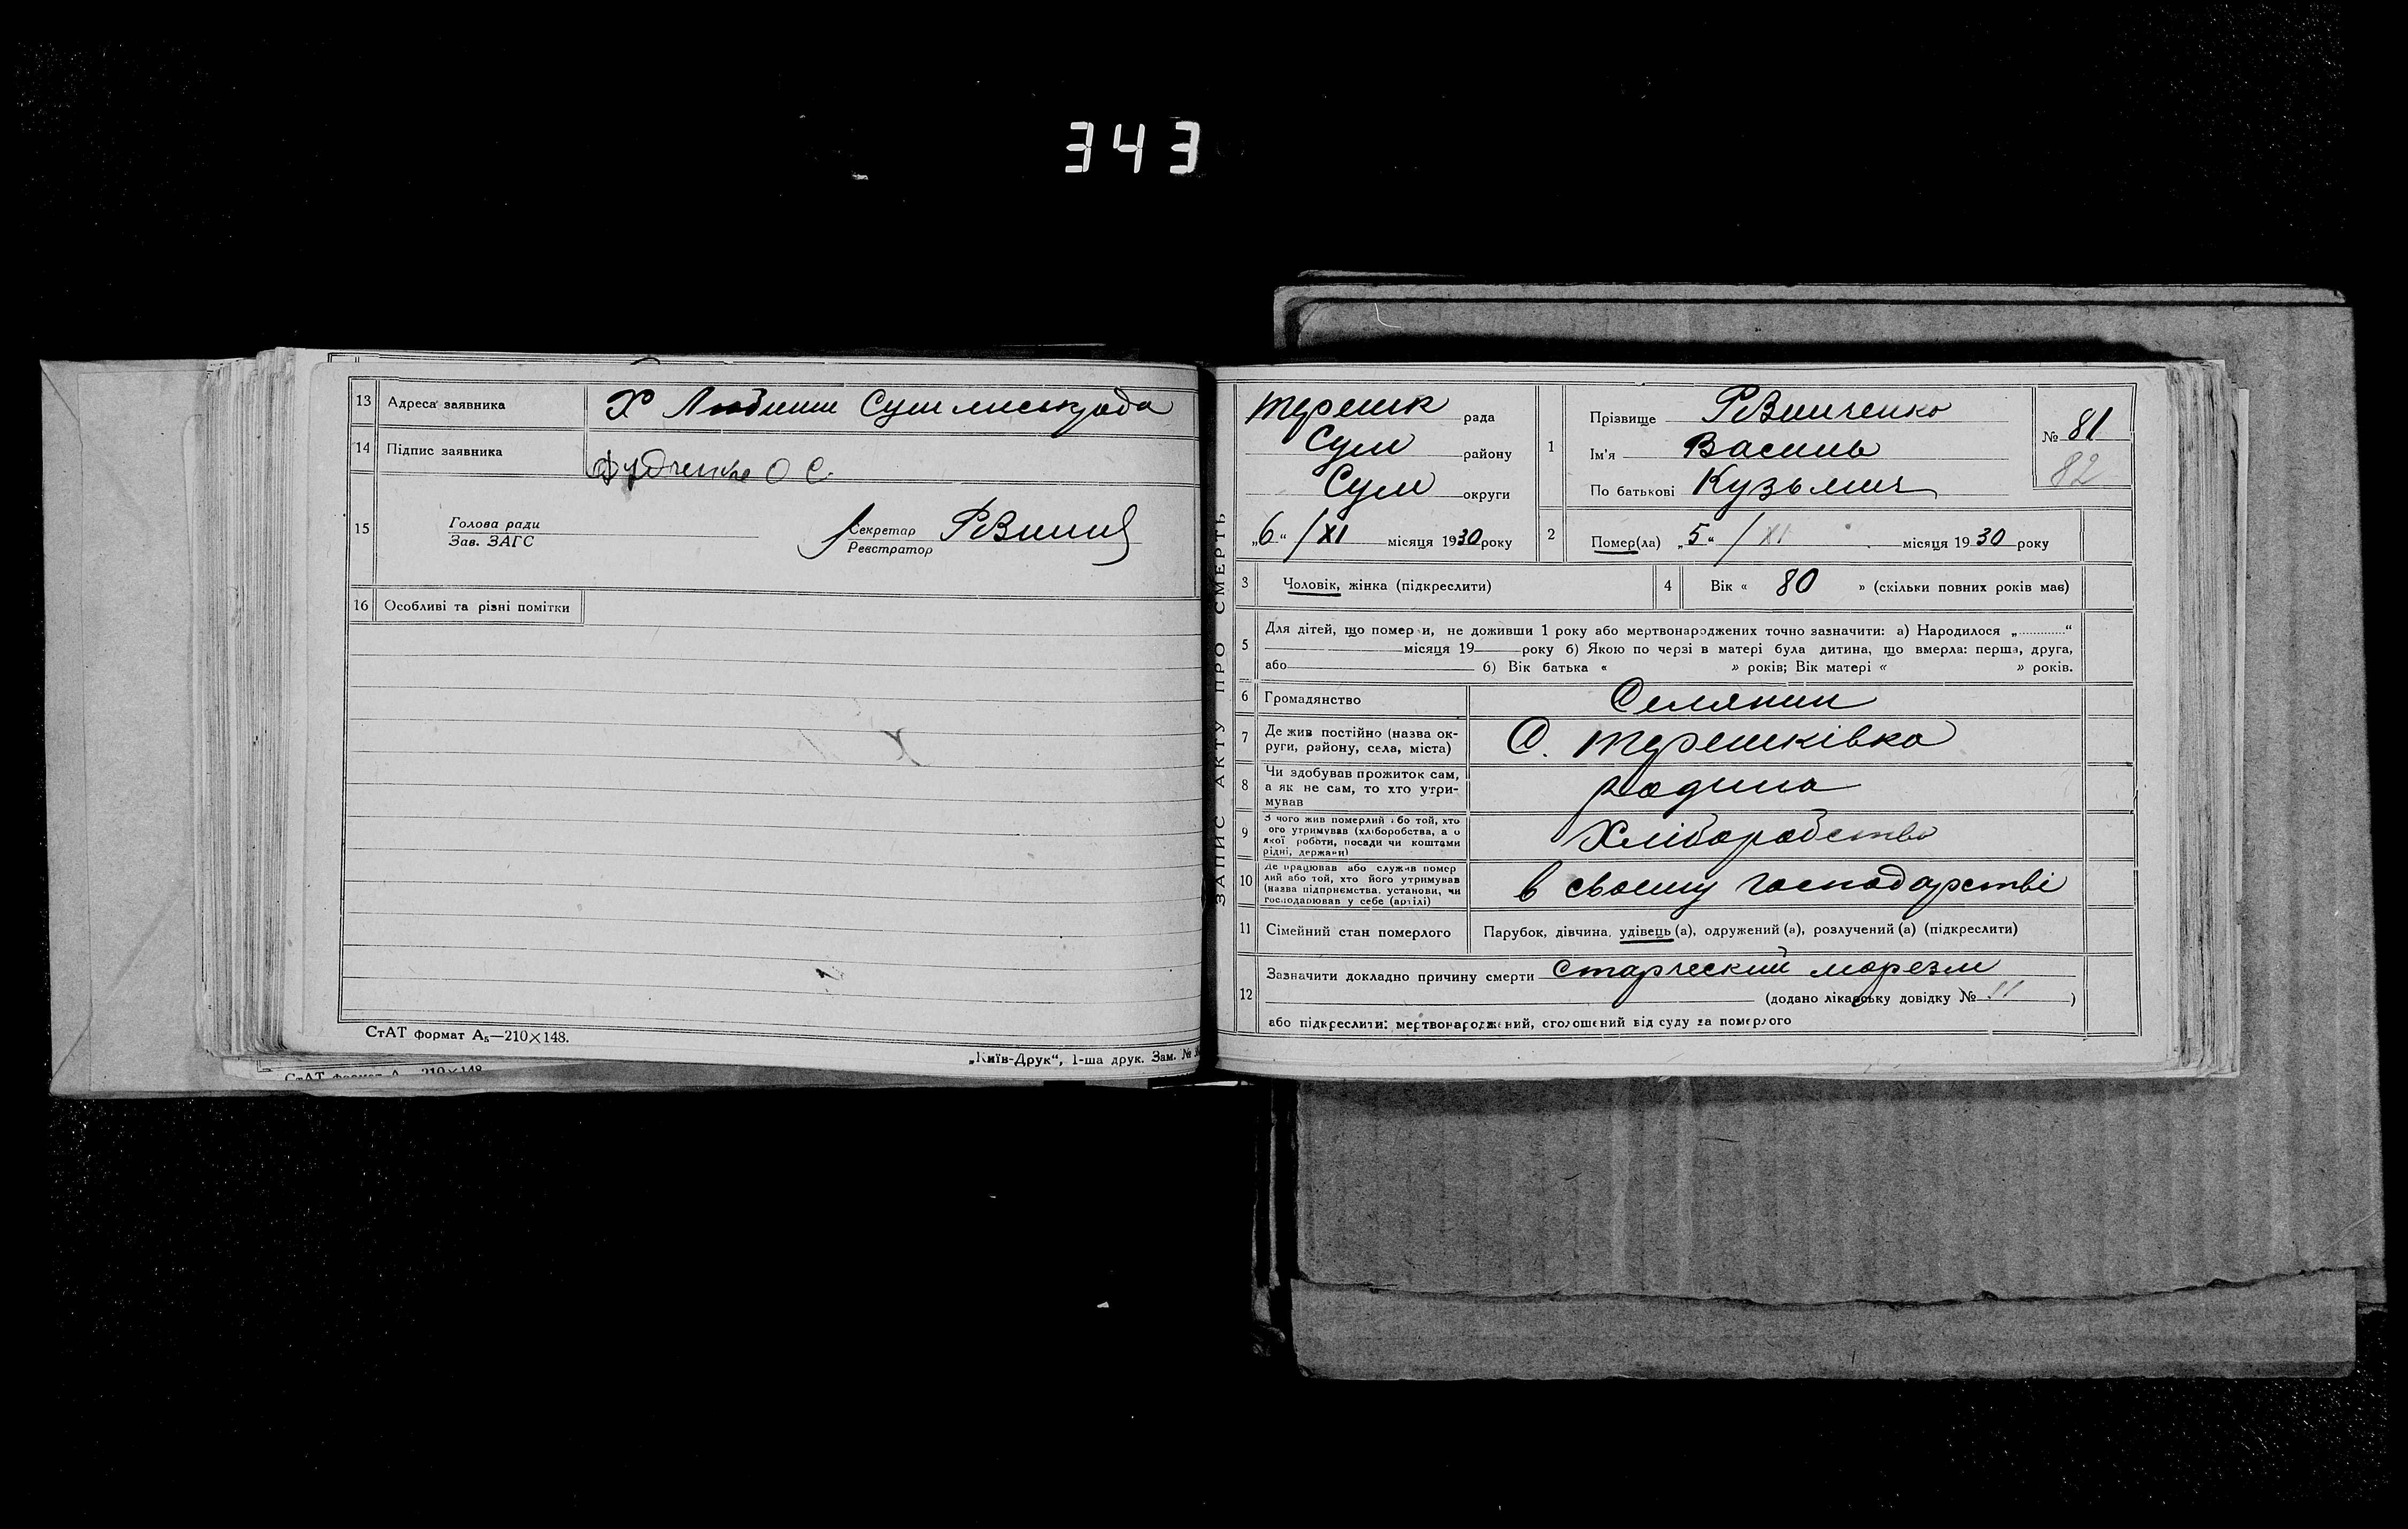 343
13 Адреса заявника Х Любими Сум
14 Підпис заявника О С.
15 Голова ради
Зав. ЗАГС
Секретар
Реєстратор
16 Особливі та різні помітки
СтАТ формат А₅—210×148.
„Київ-Друк“, 1-ша друк. Зам. №
СтАТ формат А 210×148
ЗАПИС АКТУ ПРО СМЕРТЬ
Терешк рада
Сум району
Сум округи
„6“ / XI місяця 1930 року
1 Прізвище Рвинченко
Ім'я Василь
По батькові Кузьмич
№ 81
82
2 Помер(ла) „5“ / XI місяця 1930 року
3 Чоловік, жінка (підкреслити)
4 Вік « 80 » (скільки повних років має)
5 Для дітей, що помер и, не доживши 1 року або мертвонароджених точно зазначити: а) Народилося „............“
місяця 19 року б) Якою по черзі в матері була дитина, що вмерла: перша, друга,
або б) Вік батька « » років; Вік матері « » років.
6 Громадянство Селянин
7 Де жив постійно (назва ок-
руги, району, села, міста) С. Терешківка
8 Чи здобував прожиток сам,
а як не сам, то хто утри-
мував родина
9 З чого жив померлий або той, хто
ого утримував (хліборобства, а о
якої роботи, посади чи коштами
рідні, держави) Хліборобство
10 Де працював або служив помер
лий або той, хто його утримував
(назва підприємства, установи, чи
господарював у себе (артілі) в своєму господарстві
11 Сімейний стан померлого Парубок, дівчина, удівець (а), одружений (а), розлучений (а) (підкреслити)
12 Зазначити докладно причину смерти старческий морезм
(додано лікарську довідку № )
або підкреслити: мертвонароджений, оголошений від суду за померлого